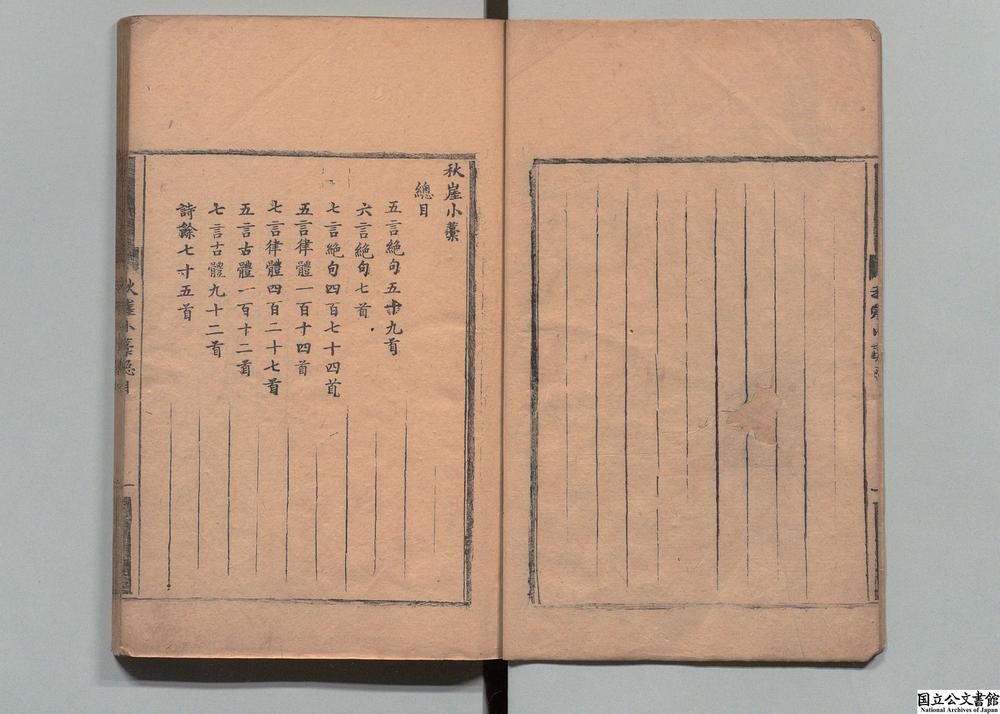 秋崖小藁
總目
五言絶句五十九首
六言絶句七首
七言絶句四百七十四首
五言律體一百十四首
七言律體四百二十七首
五言古體一百十二首
七言古體九十二首
詩餘七寸五首
秋崖小藁總目
一
国立公文書館
National Archives of Japan